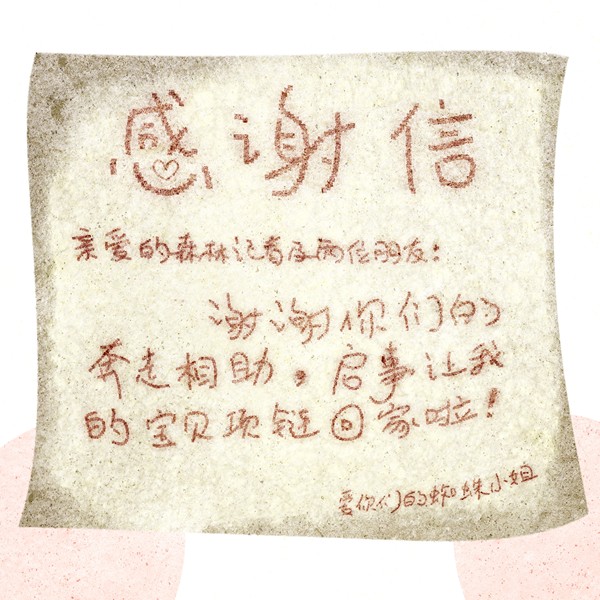 感谢信
亲爱的森林记者及两位朋友：
谢谢你们的
奔走相助。启事让我
的宝贝项链回家啦！
爱你们的蜘蛛小姐